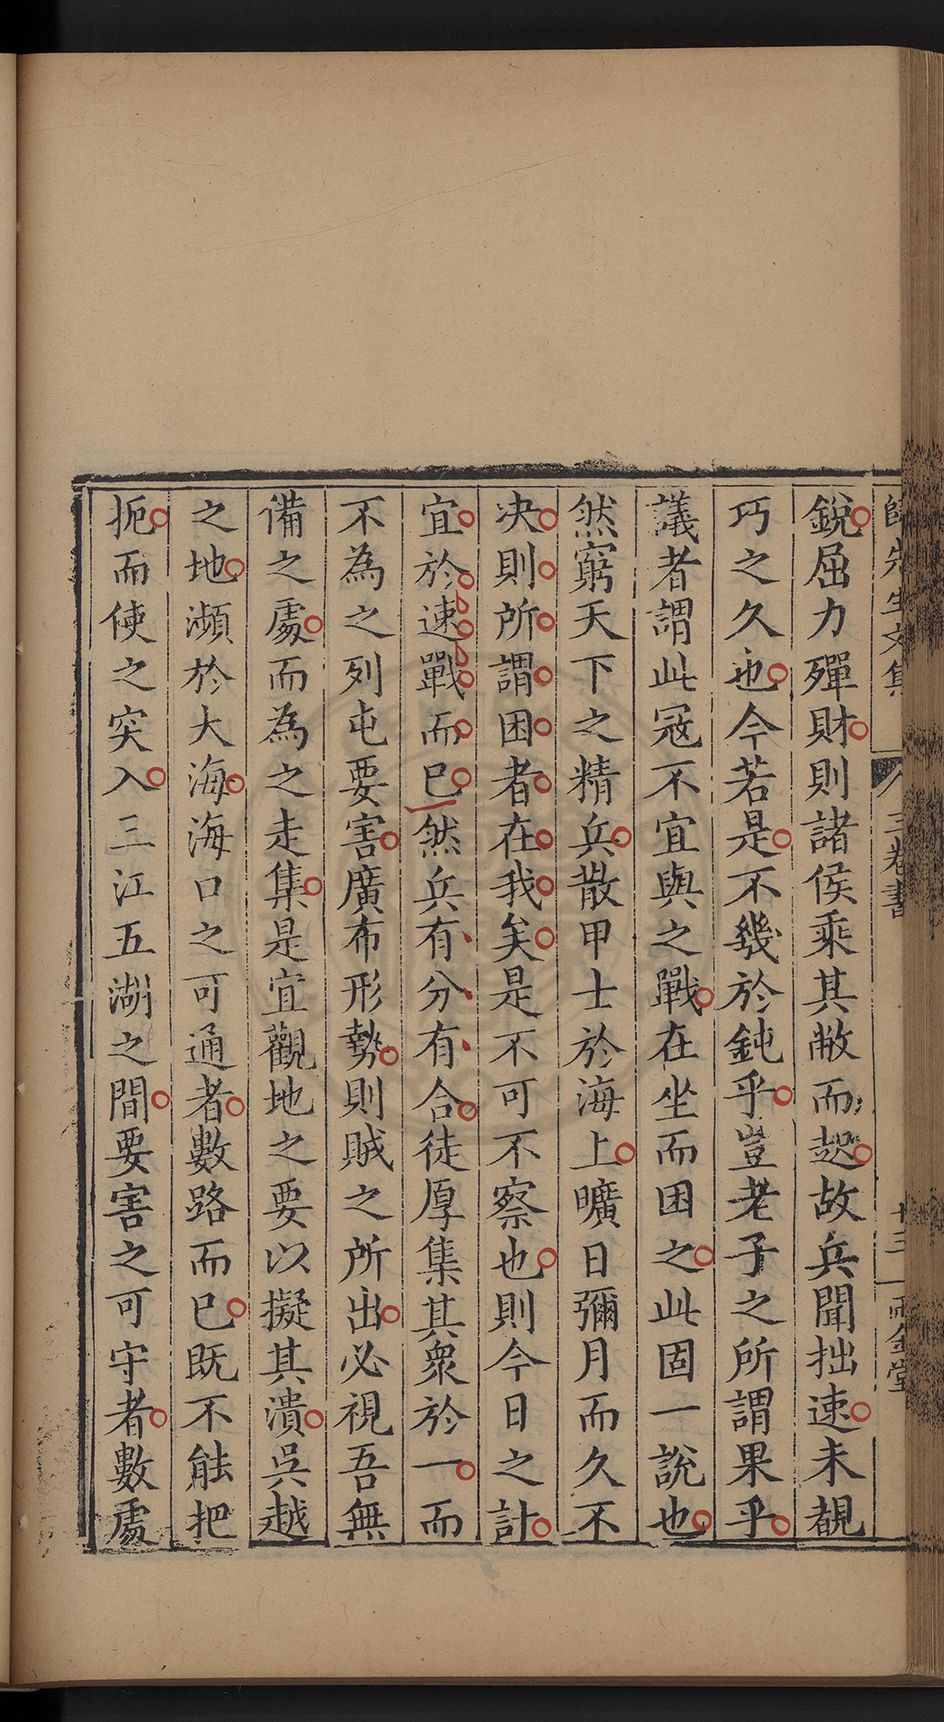 銳屈力殫財則諸侯乘其敝而起故兵聞拙速未覩
巧之久也今若是不幾於鈍乎豈老子之所謂果乎
議者謂此冦不宜與之戰在坐而困之此固一說也
然窮天下之精兵散甲士於海上曠日彌月而久不
决則所謂困者在我矣是不可不察也則今日之計
宜於速戰而已然兵有分有合徒厚集其衆於一而
不為之列屯要害廣布形勢則賊之所出必視吾無
備之處而為之走集是宜觀地之要以擬其潰吳越
之地瀕於大海海口之可通者數路而已既不能把
扼而使之突入三江五湖之間要害之可守者數處